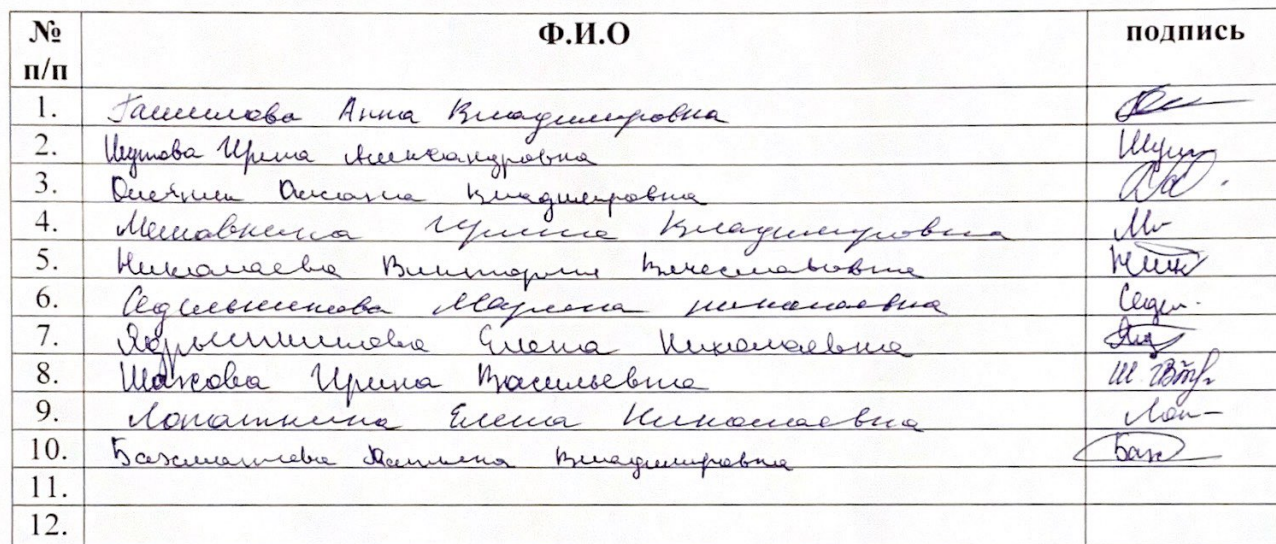 № п/п Ф.И.О подпись
1. Анна Владимировна
2. Шутова Ирина Александровна Шут
3. Оксана Владимировна
4. Ирина Владимировна
5. Николаева Виктория Вячеславовна Ник
6. Седельникова Марина николаевна Седел.
7. Елена Николаевна
8. Шахова Ирина Васильевна
9. Лопаткина Елена Николаевна Лоп
10. Владимировна Бах
11.
12.